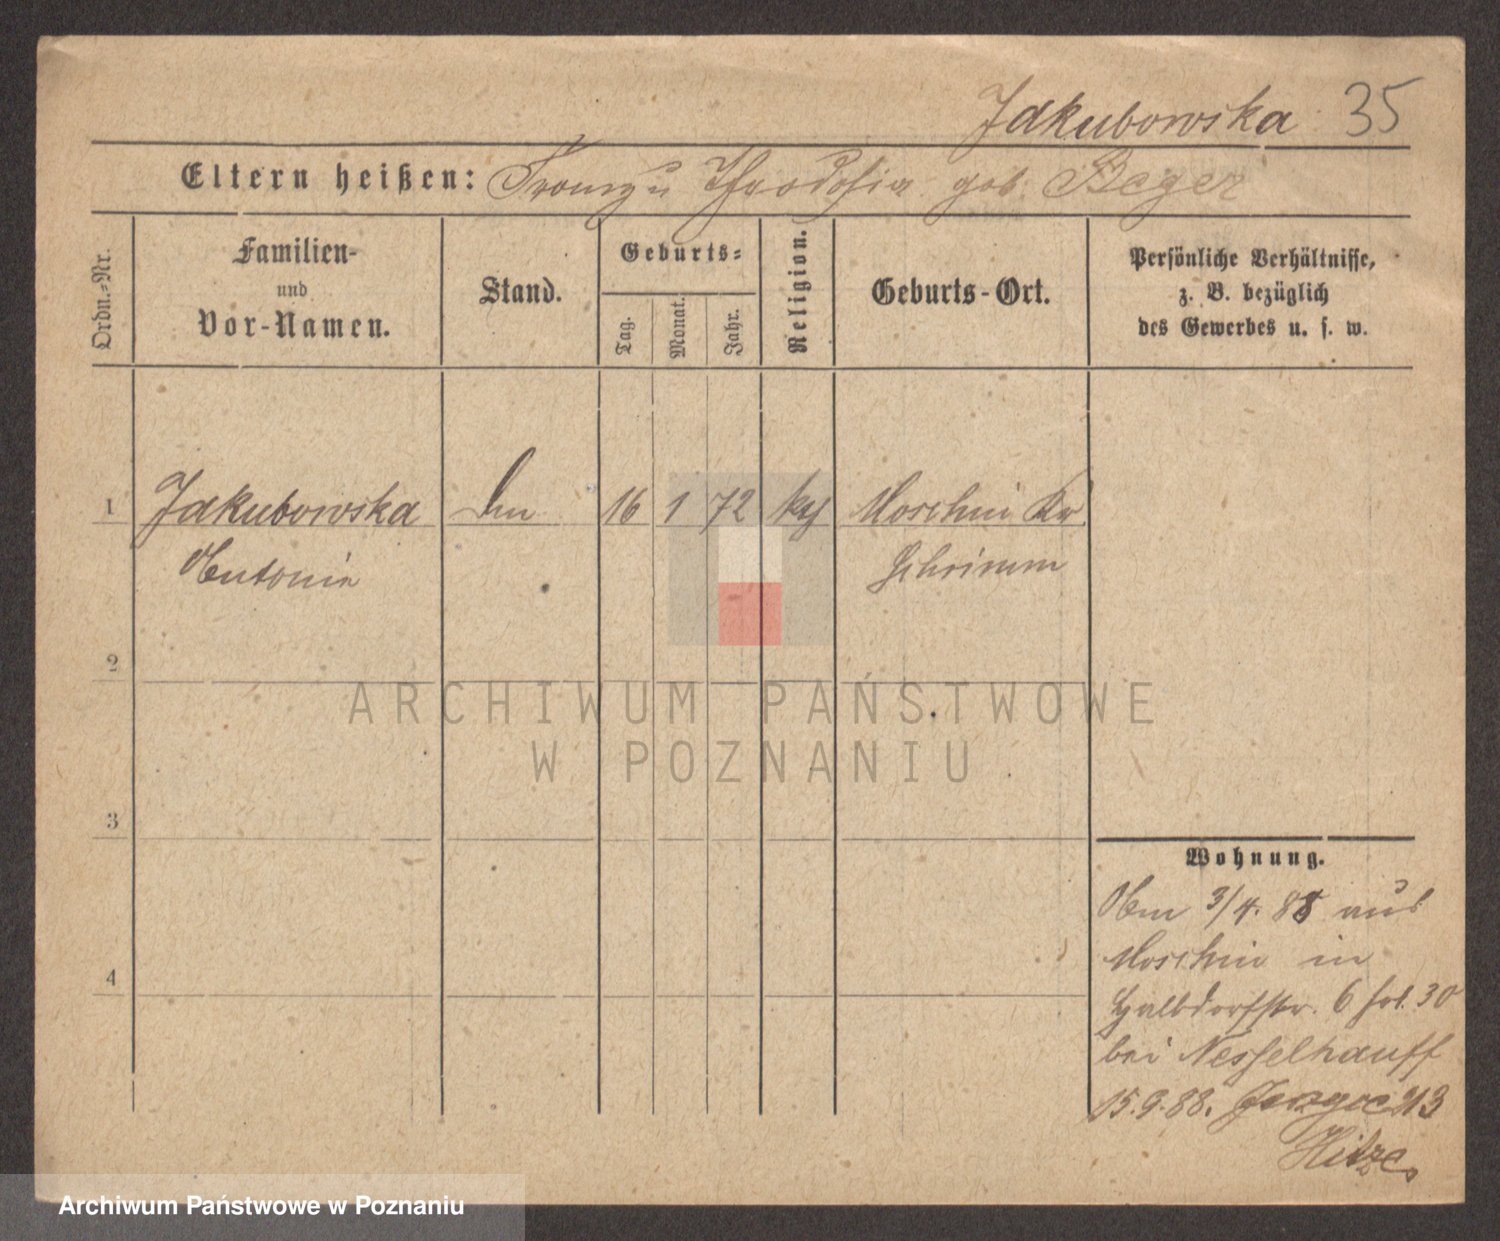 Jakubowska 35
Eltern heißen: Franz u Theodosia geb. Beger
Ordn.-Nr.
Familien-
und
Vor-Namen.
Stand.
Geburts-
Tag.
Monat.
Jahr.
Religion.
Geburts-Ort.
Persönliche Verhältnisse,
z. B. bezüglich
des Gewerbes u. s. w.
1 Jakubowska 16 1 72 Moschin Kr
Antonia Schrimm
2
3
4
Wohnung.
Am 3/4. 88 aus
Moschin in
Halbdorfstr. 6 fol. 30
bei Nesselhauff
15.9.88. 213
Hitze
ARCHIWUM PAŃSTWOWE
W POZNANIU
Archiwum Państwowe w Poznaniu